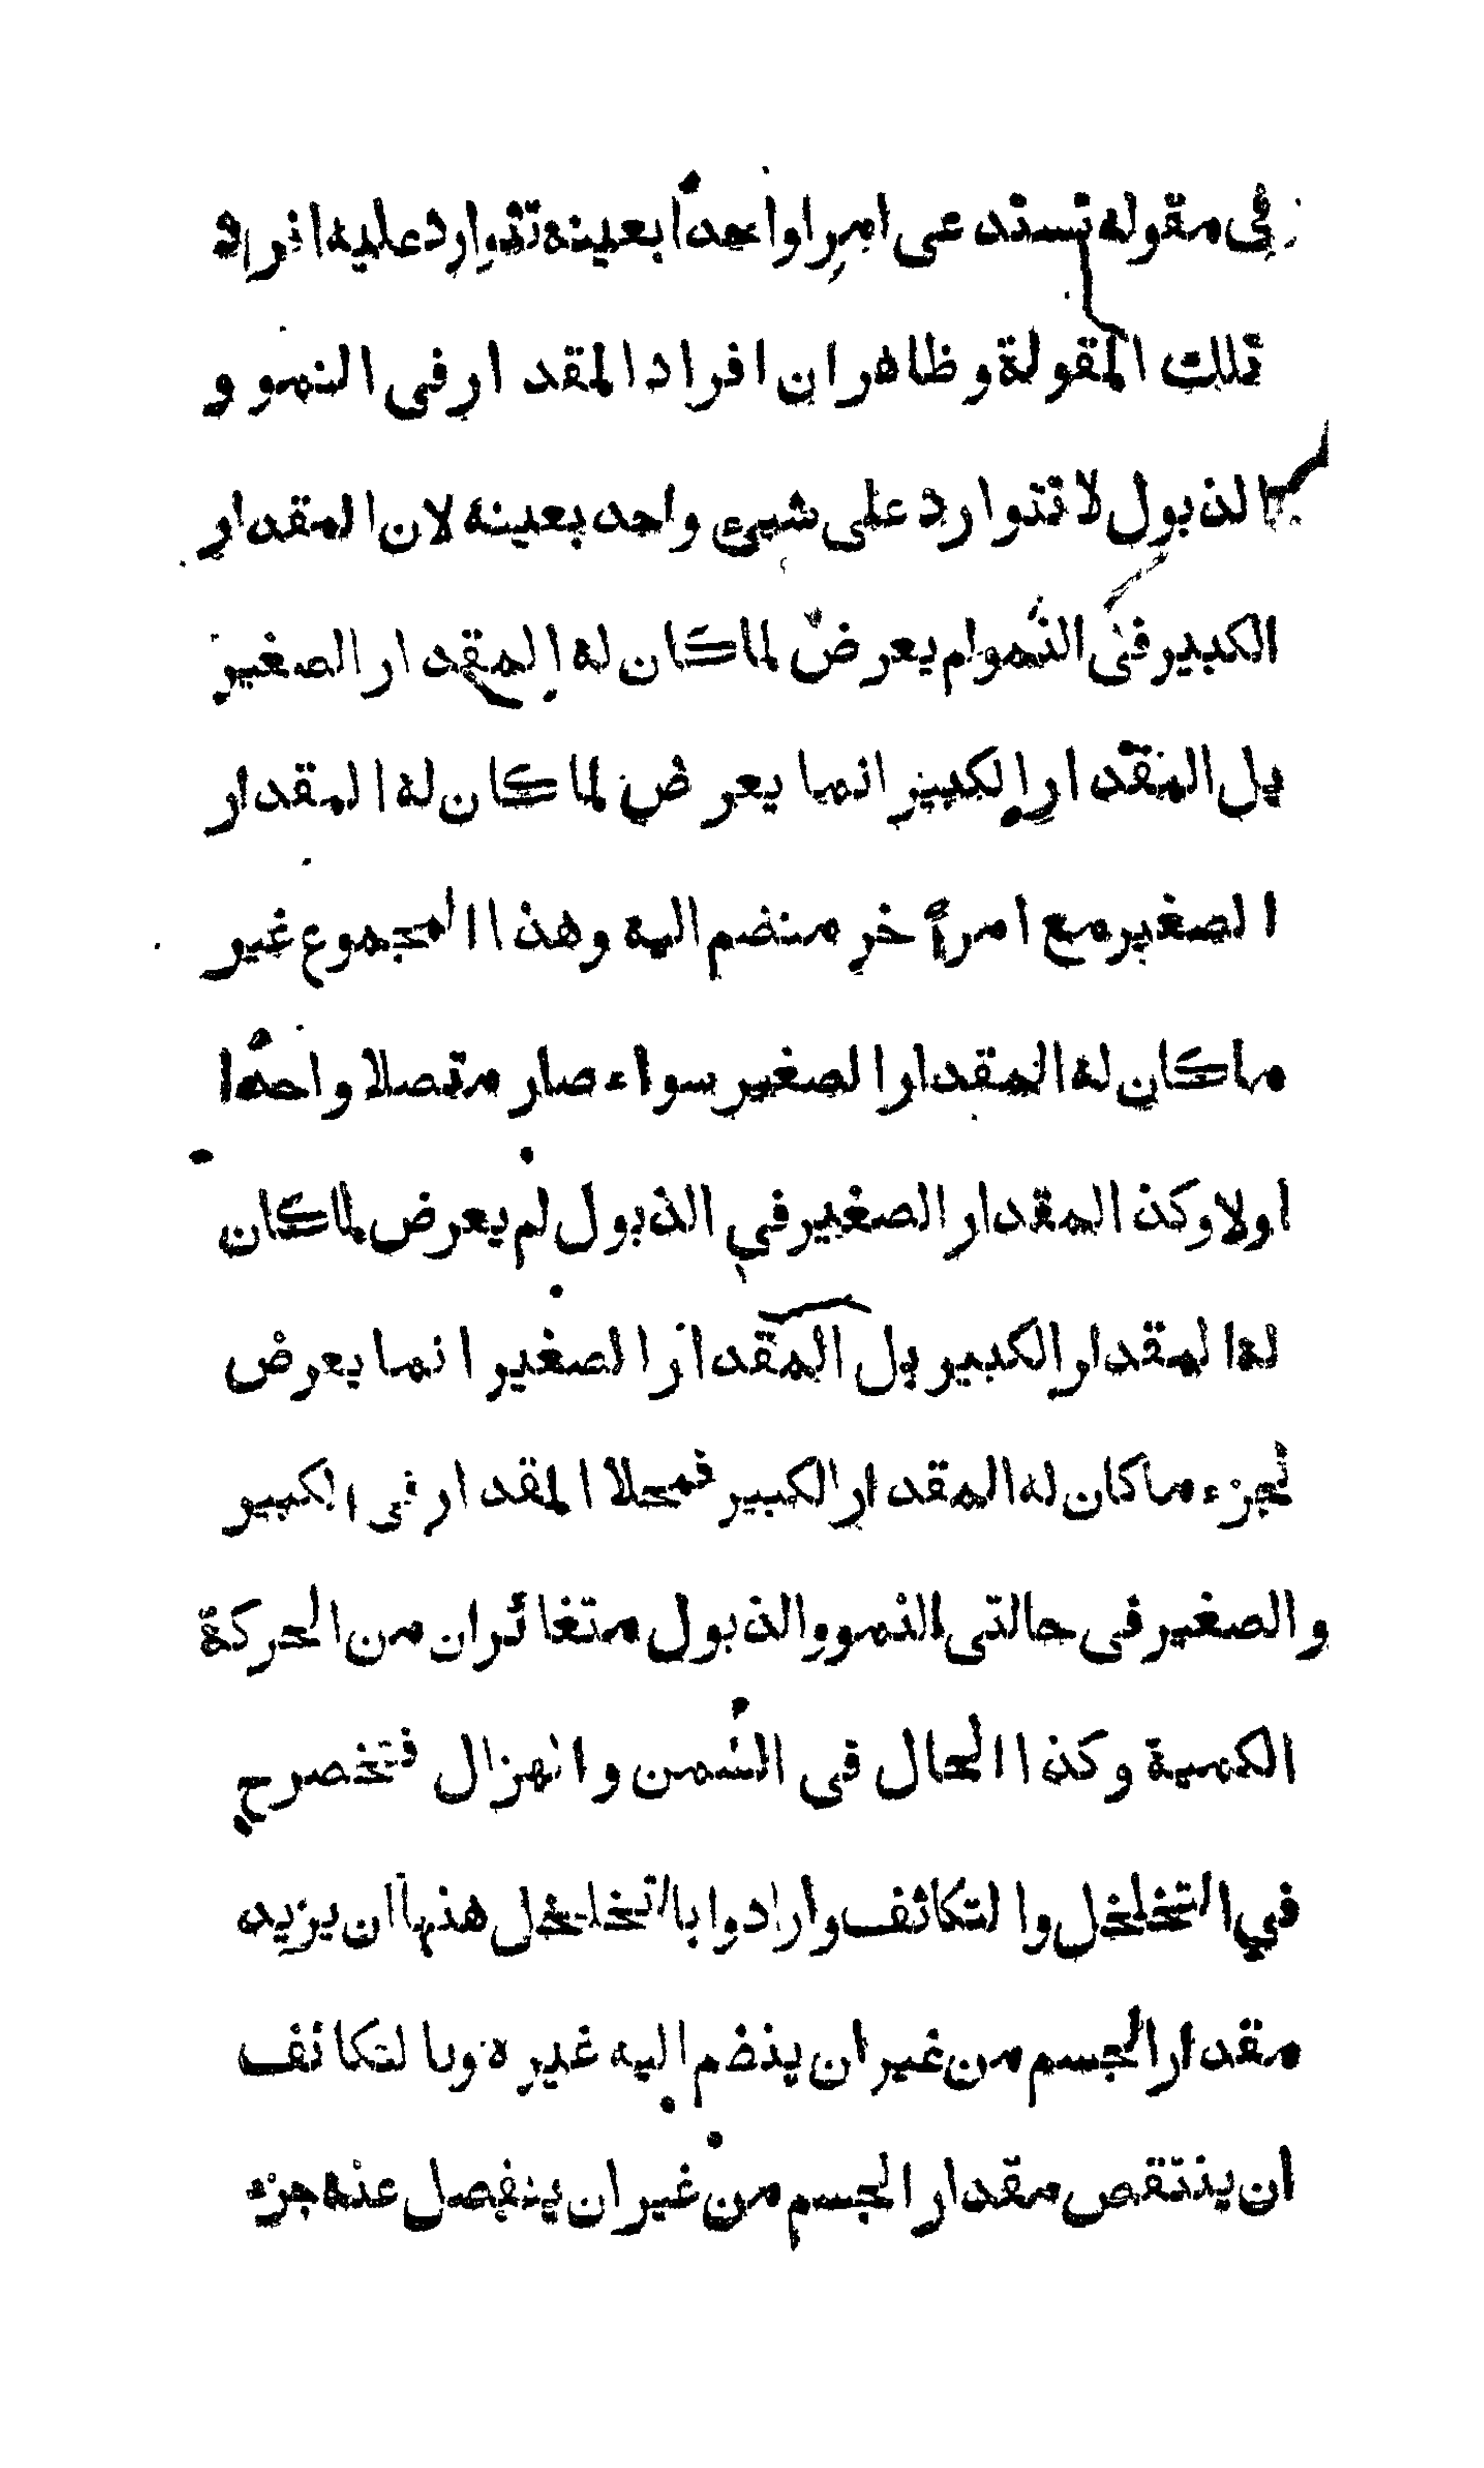 فى مقولة تستدعى امرا واحدًا بعينه تتوارد عليه افراد
تلك المقولة وظاهر ان افراد المقدار فى النمو و
الذبول لا تتوارد على شىء واحد بعينه لان المقدار
الكبير فى النمو لم يعرض لما كان له المقدار الصغير
بل المقدار الكبير انما يعرض لما كان له المقدار
الصغير مع امر آخر منضم اليه وهذا المجموع غير
ما كان له المقدار الصغير سواء صار متصلا واحدًا
اولا وكذ المقدار الصغير في الذبول لم يعرض لما كان
له المقدار الكبير بل المقدار الصغير انما يعرض
لجزء ما كان له المقدار الكبير فمحلا المقدار فى الكبير
والصغير فى حالتى النمو والذبول متغائران من الحركة
الكمية وكذا الحال فى السمن وانهزال فتخصرح
في التخلخل والتكاثف وارادوا بالتخلخل هنهاان يزيد
مقدار الجسم من غير ان ينضم اليه غيره وبالتكاثف
ان ينتقص مقدار الجسم من غير ان ينفصل عنه جزء